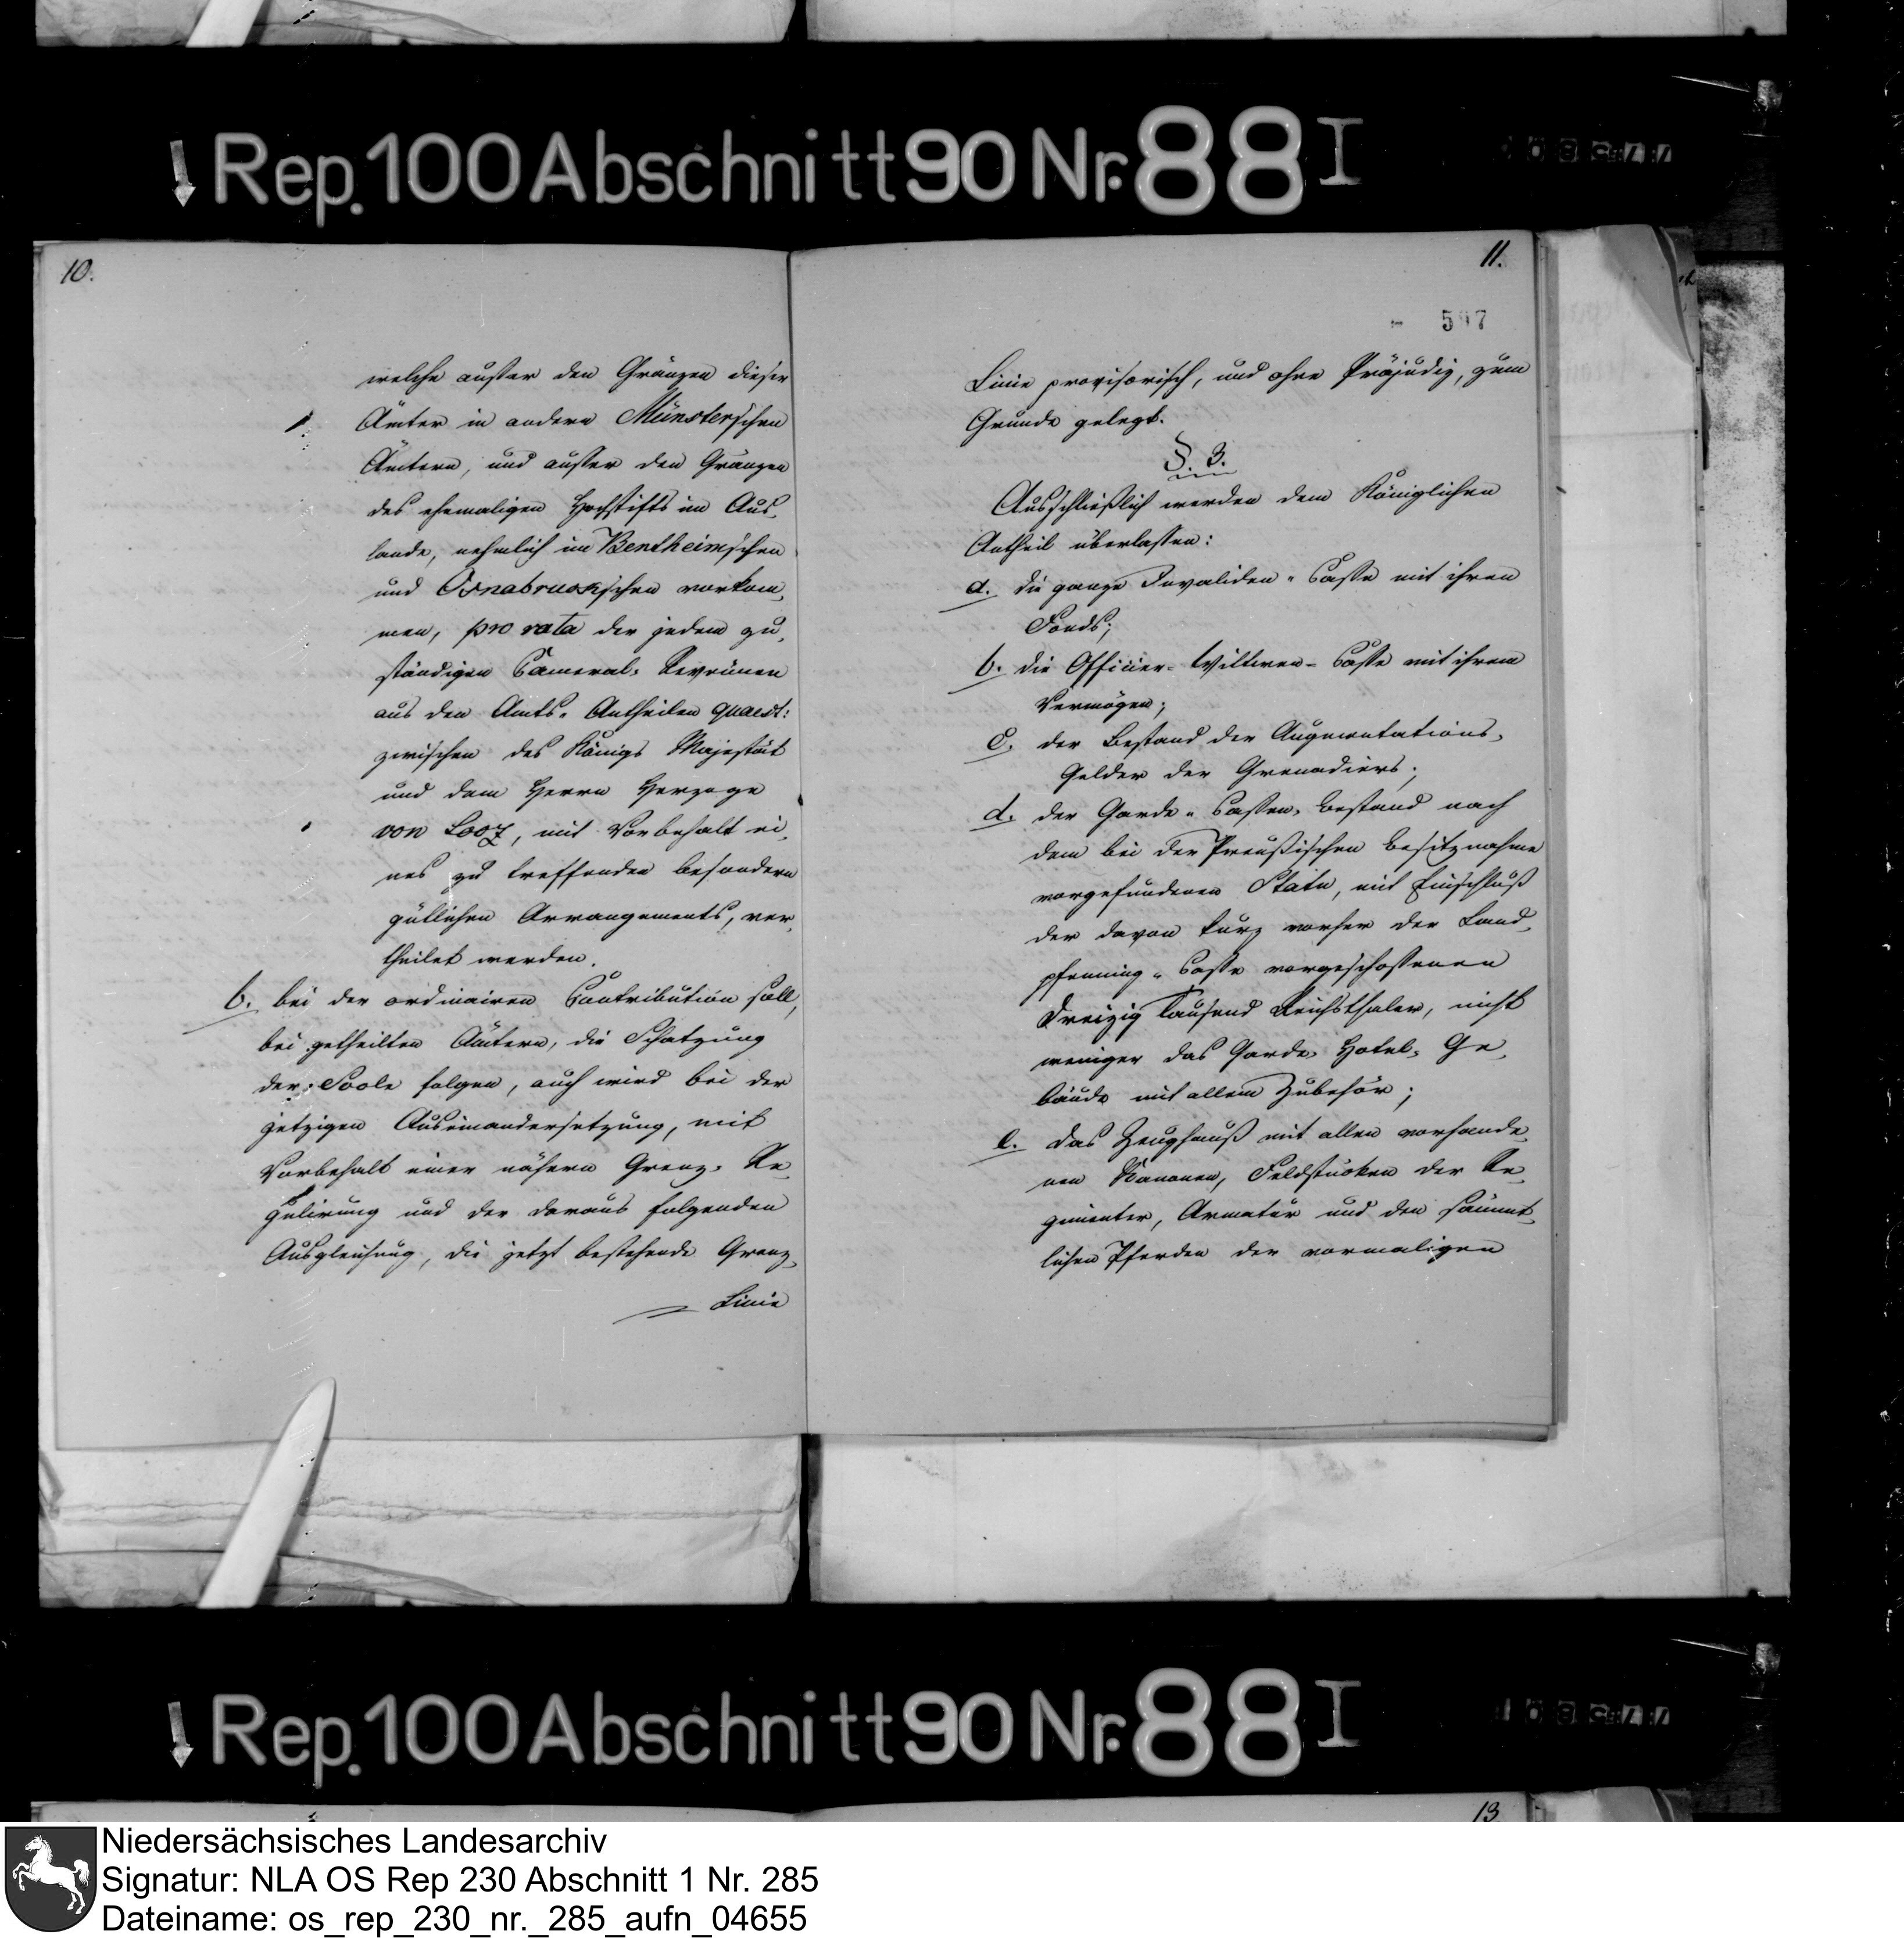 Rep. 100 Abschnitt 90 Nr. 88 I
10.
welche ausser den Gränzen dieser
Ämter in andern Münsterschen
Ämtern, und ausser den Gränzen
des ehemaligen Hochstifts im Aus-
lande, nehmlich im Bentheimschen
und Osnabruckschen vorkom-
men, pro rata der jedem zu-
ständigen Cameral-Revenüen
aus den Amts-Antheilen quaest:
zwischen des Königs Majestät
und dem Herrn Herzoge
von Looz, mit Vorbehalt ei-
nes zu treffenden besondern
gütlichen Arrangements, ver-
theilet werden.
b. bei der ordinairen Contribution soll,
bei getheilten Ämtern, die Schatzung
der Soole folgen, auch wird bei der
jetzigen Auseinandersetzung, mit
Vorbehalt einer nähern Grenz-Re-
gulirung und der daraus folgenden
Ausgleichung, die jetzt bestehende Grenz-
Linie
11.
Linie provisorisch, und ohne Präjudiz, zum
Grunde gelegt.
§. 3.
Ausschließlich werden dem Königlichen
Antheil überlassen:
a. die ganze Invaliden-Casse mit ihren
Fonds;
b. die Officier-Wittwen-Casse mit ihrem
Vermögen;
c. der Bestand der Augmentations-
Gelder der Grenadiers;
d. der Garde-Cassen-Bestand nach
dem bei der Preußischen Besitznahme
vorgefundenen Statu, mit Einschluß
der davon kurz vorher der Land-
pfenning-Casse vorgeschossenen
Dreizig Tausend Reichsthaler, nicht
weniger das Garde-Hotel-Ge-
bäude mit allem Zubehör;
e. das Zeughauß mit allen vorhande-
nen Kanonen, Feldstücken der Re-
gimenter, Armatur und den sämmt-
lichen Pferden der vormaligen
Rep. 100 Abschnitt 90 Nr. 88 I
13
Niedersächsisches Landesarchiv
Signatur: NLA OS Rep 230 Abschnitt 1 Nr. 285
Dateiname: os_rep_230_nr._285_aufn_04655